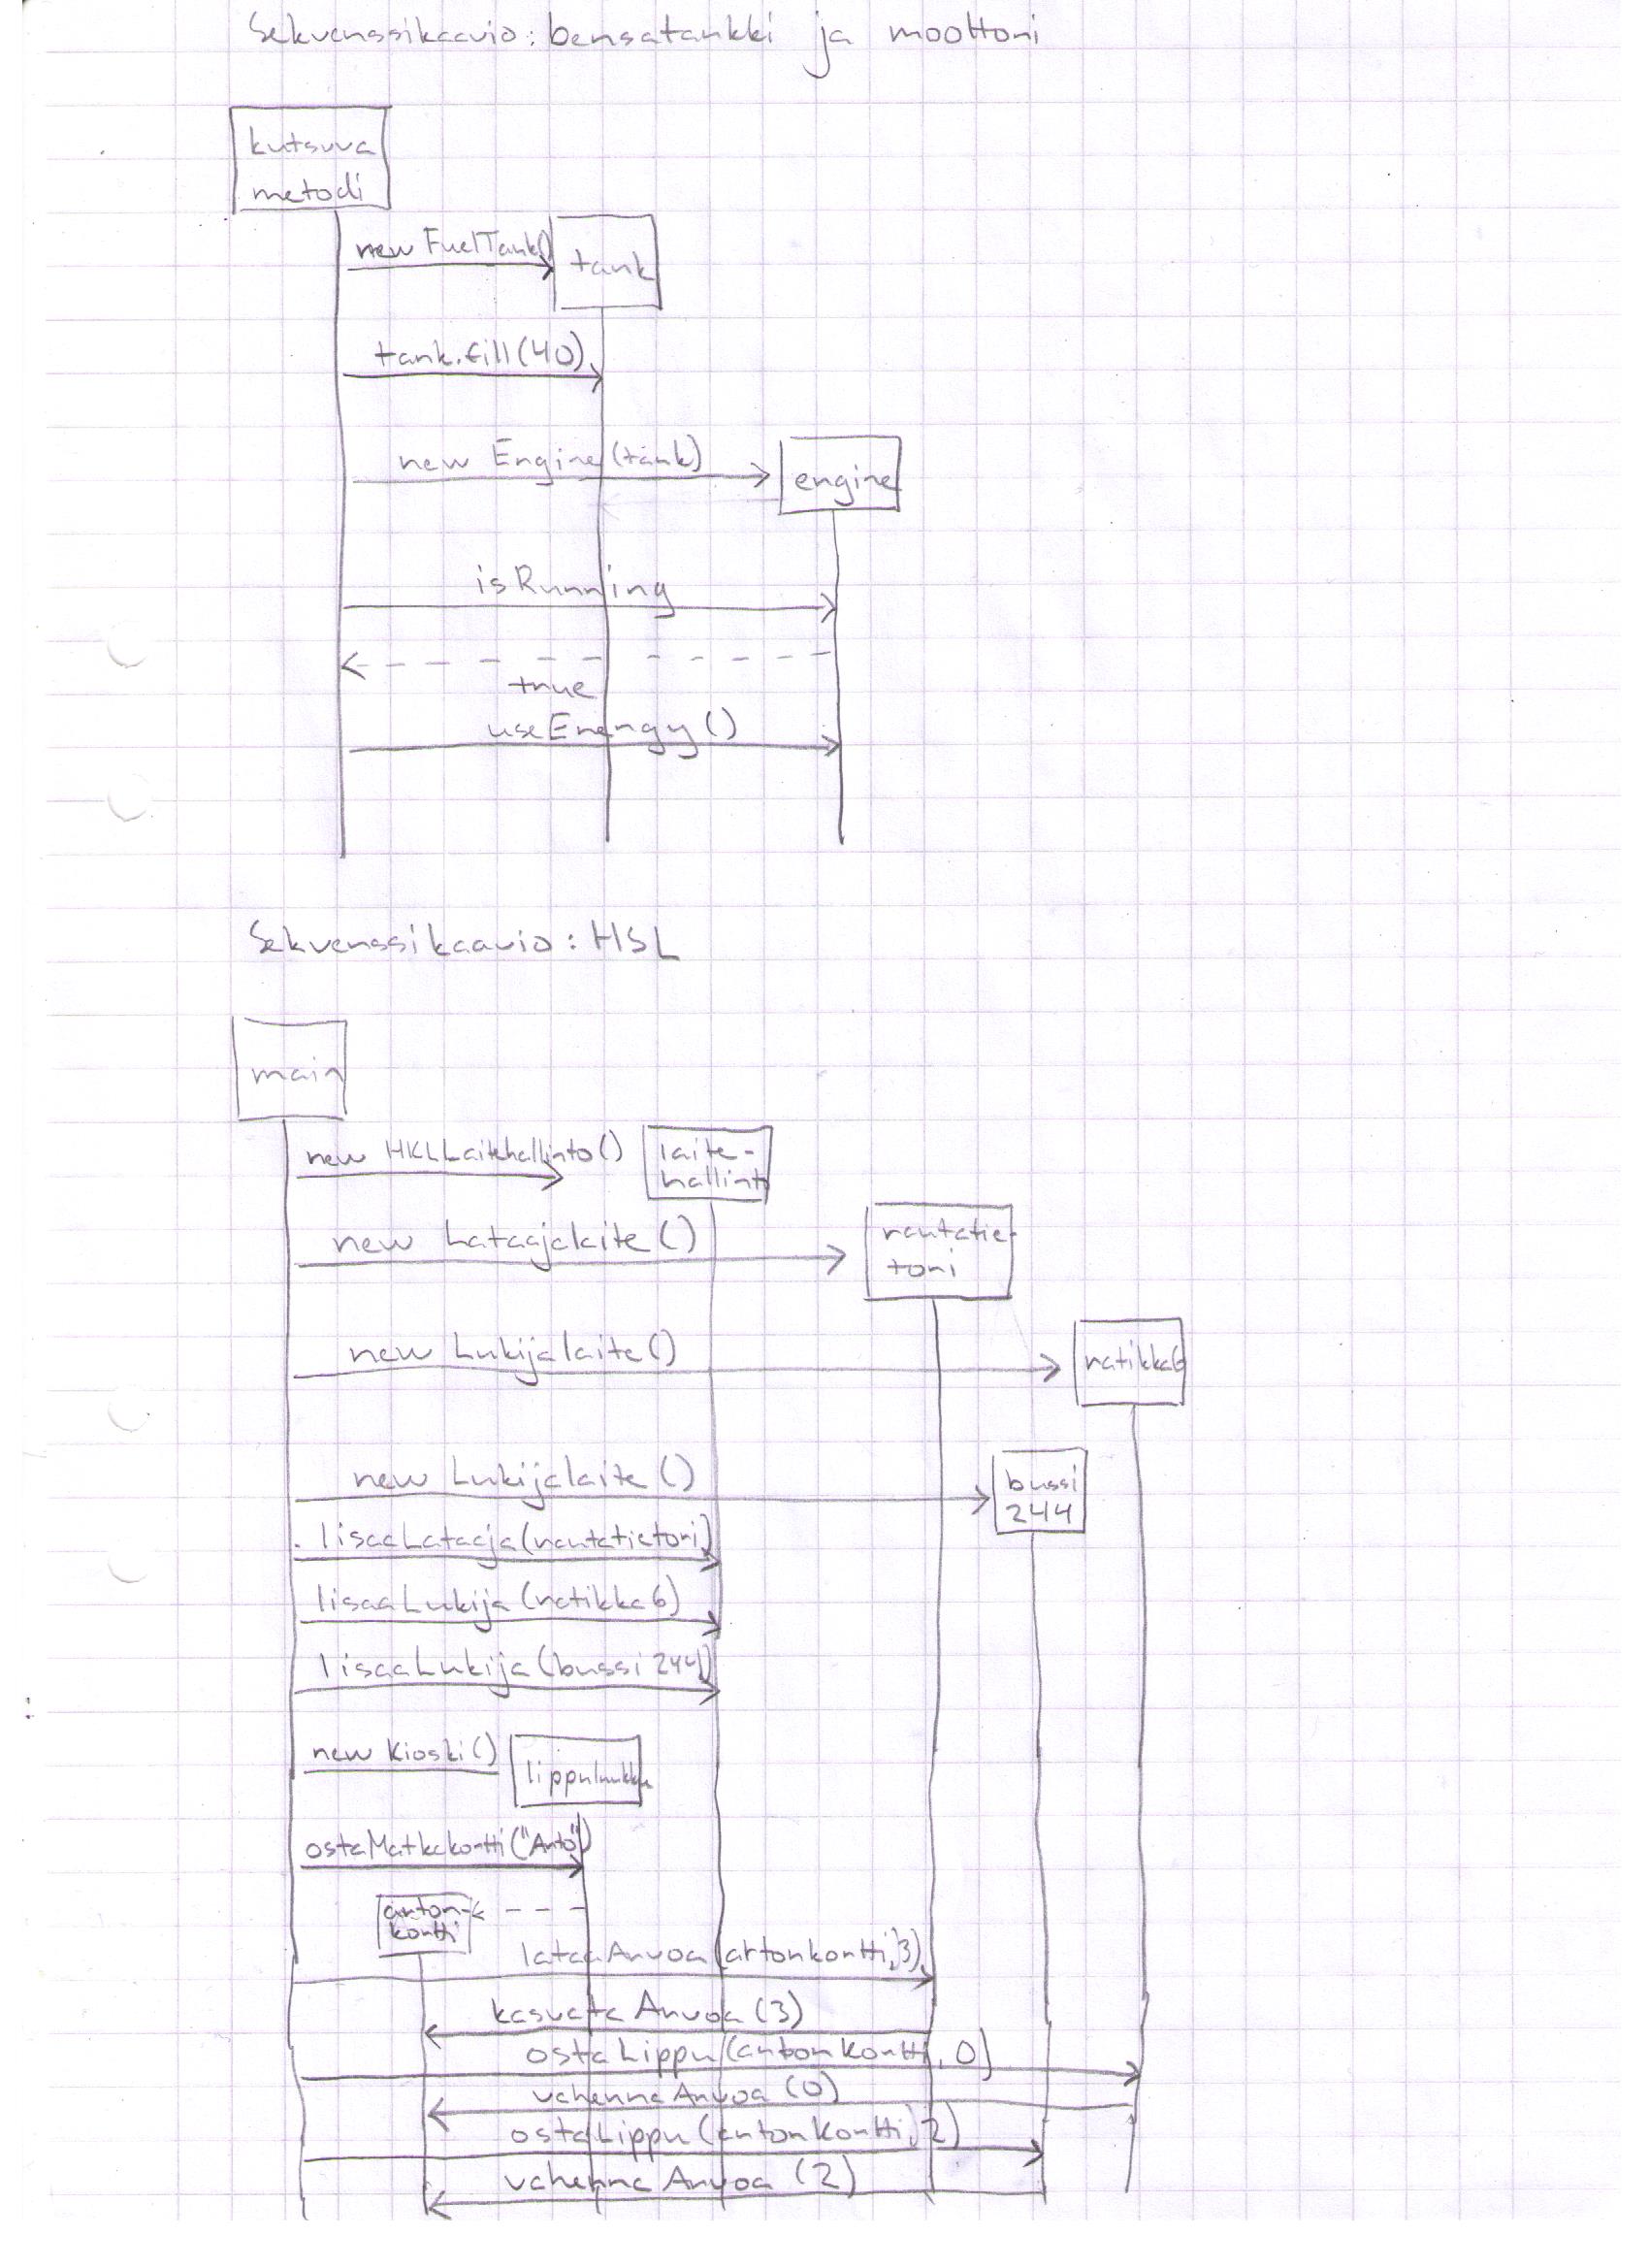 Sekvenssikaavio: bensatankki ja moottori
kutsuva
metodi
new FuelTank()
tank
tank.fill(40)
new Engine(tank)
engine
isRunning
true
useEnergy()
Sekvenssikaavio: HSL
main
new HKLLaitehallinto()
laite-
hallinto
new Lataajalaite()
rautatie-
tori
new Lukijalaite()
ratikka6
new Lukijalaite()
bussi
244
lisaaLataaja(rautatietori)
lisaaLukija(ratikka6)
lisaaLukija(bussi244)
new Kioski()
lippuluukku
ostaMatkakortti("Arto")
arton-
kortti
lataaArvoa(artonkortti,3)
kasvataArvoa(3)
ostaLippu(artonKortti,0)
vahennaArvoa(0)
ostaLippu(artonKortti,2)
vahennaArvoa(2)